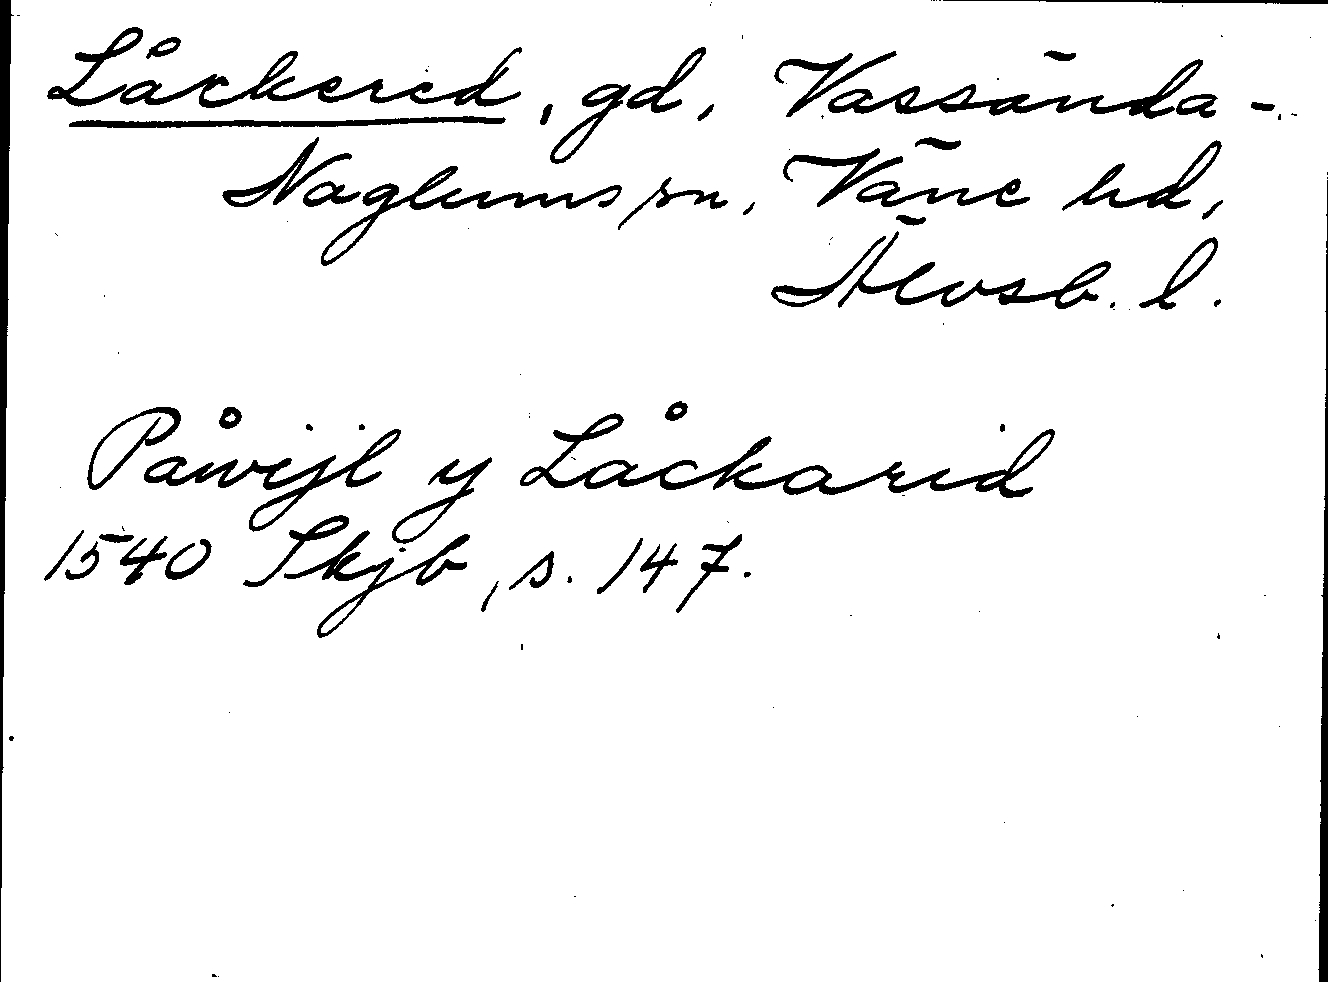 Låckered, gd, Vassända-
Naglums sn, Väne hd,
Älvsb. l.
Påwijl y Låckarid
1540 Skjb, s. 147.